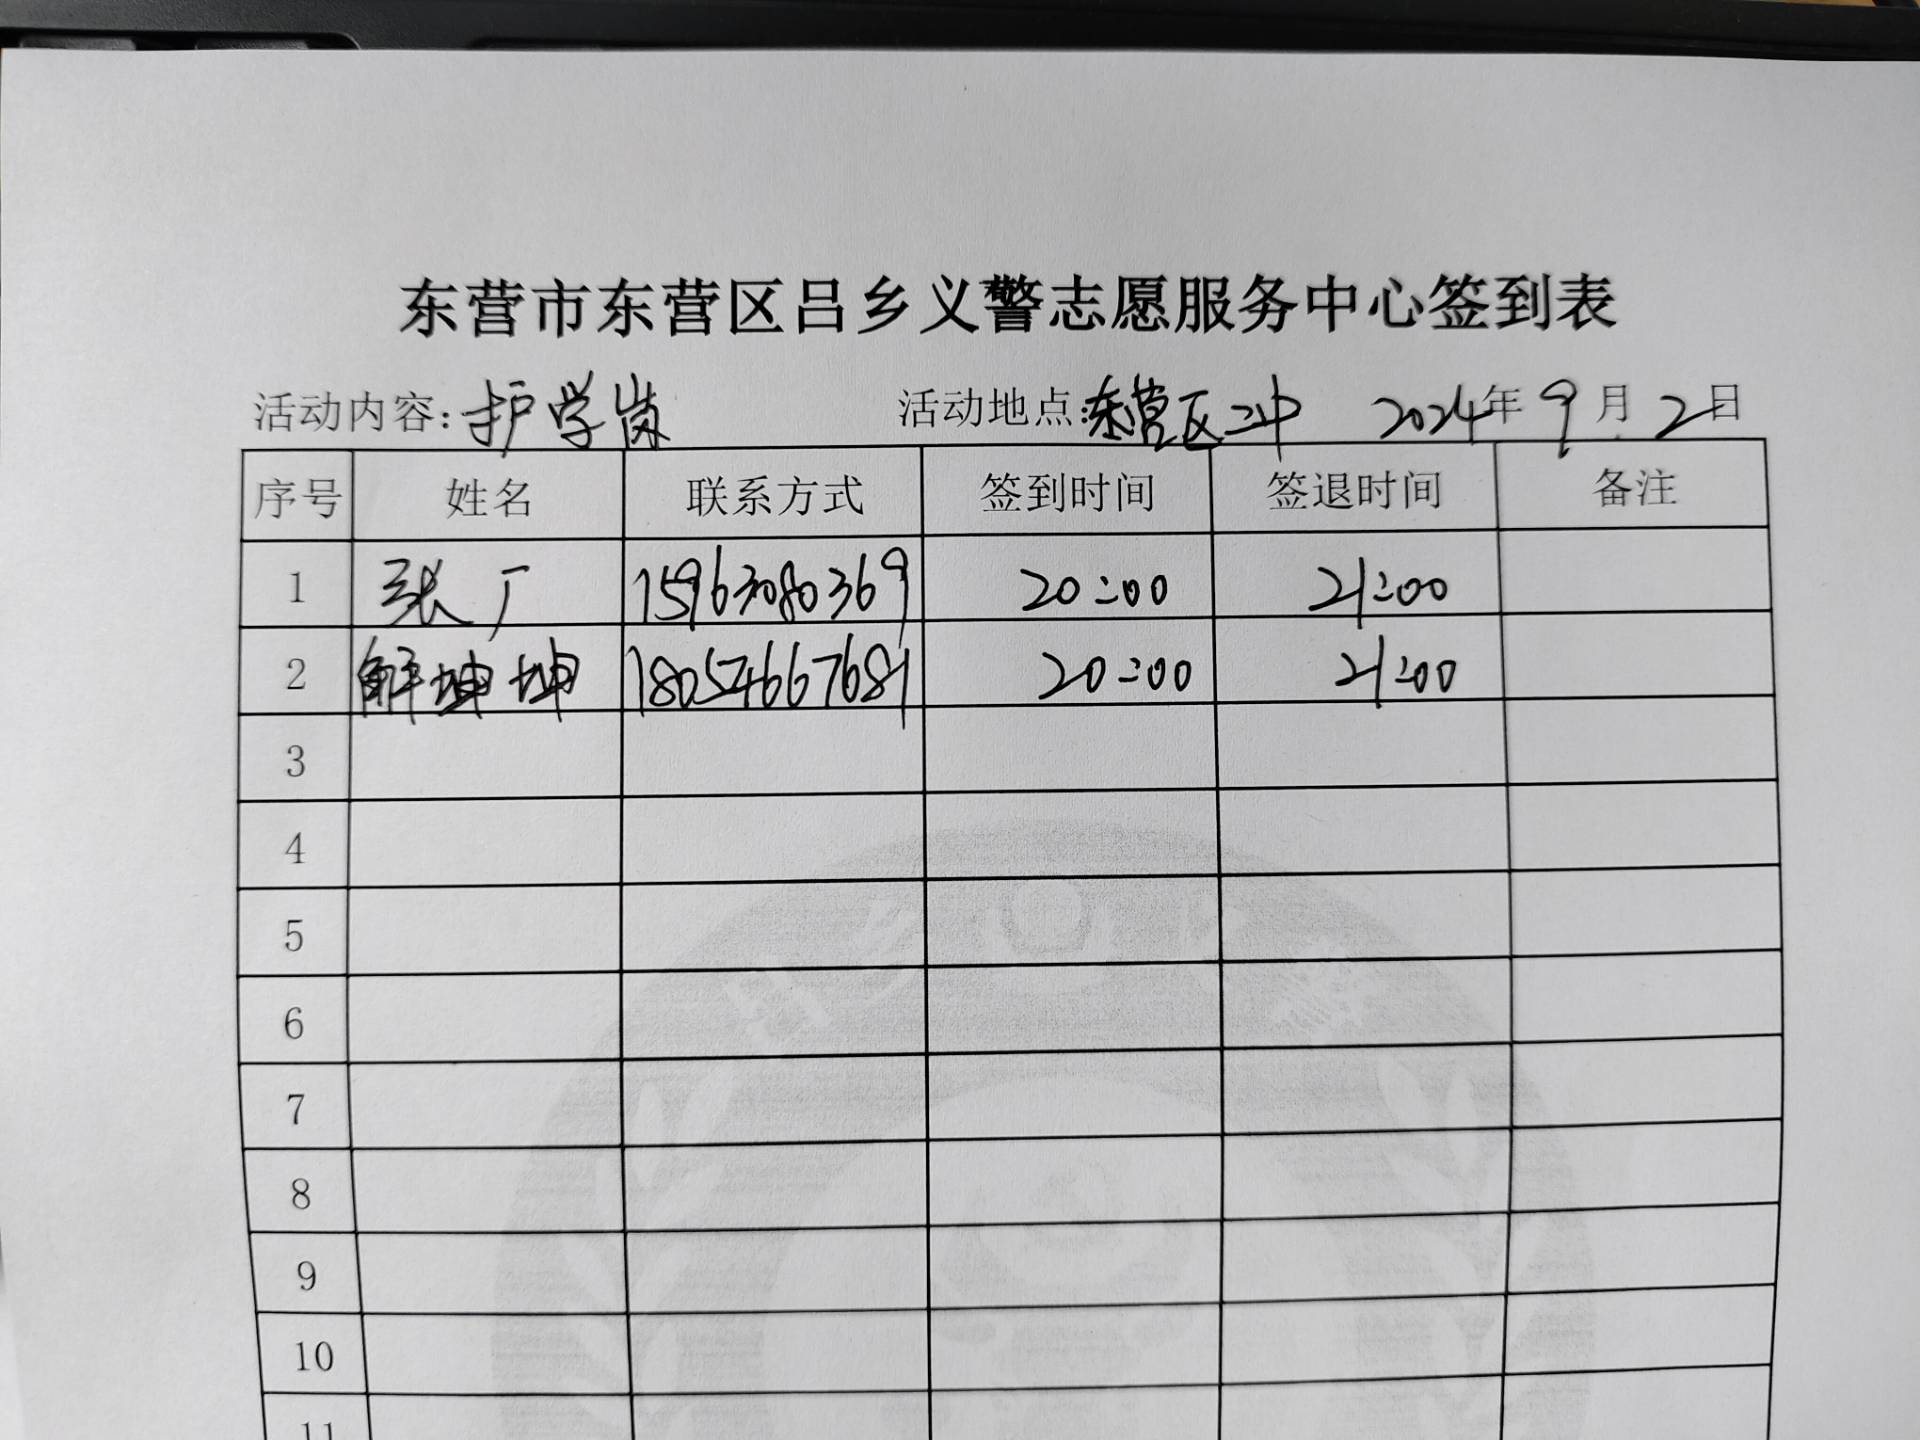 东营市东营区吕乡义警志愿服务中心签到表
活动内容:护学岗 活动地点:东营区二中 2024年9月2日
序号 姓名 联系方式 签到时间 签退时间 备注
1 张广 15963080369 20:00 21:00
2 解坤坤 18054667681 20:00 21:00
3
4
5
6
7
8
9
10
11